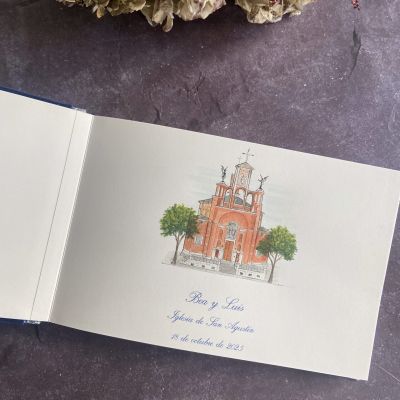 Bea y Luis
Iglesia de San Agustín
18 de octubre de 2025